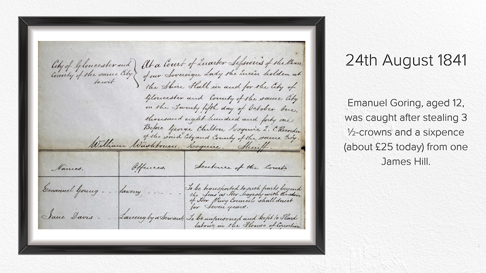 City of Gloucester and
County of the same City
to wit
At a Court of Quarter Sessions of the Peace
of our Sovereign Lady the Queen holden at
the Shire Hall in and for the City of
Gloucester and County of the same City
on the Twenty fifth day of October One
thousand eight hundred and forty one
Before George Chilton Esquire Q. C. Recorder
of the said City and County of the same City
William Washbourn, Esquire, Sheriff
Names. Offences. Sentence of the Court
Emanuel Goring Larceny To be transported to such parts beyond
the Seas as Her Majesty with the advice
of Her Privy Council shall direct
for Seven years.
Jane Davis Larceny by a Servant To be imprisoned and kept to Hard
labour in the House of Correction
24th August 1841
Emanuel Goring, aged 12,
was caught after stealing 3
½-crowns and a sixpence
(about £25 today) from one
James Hill.